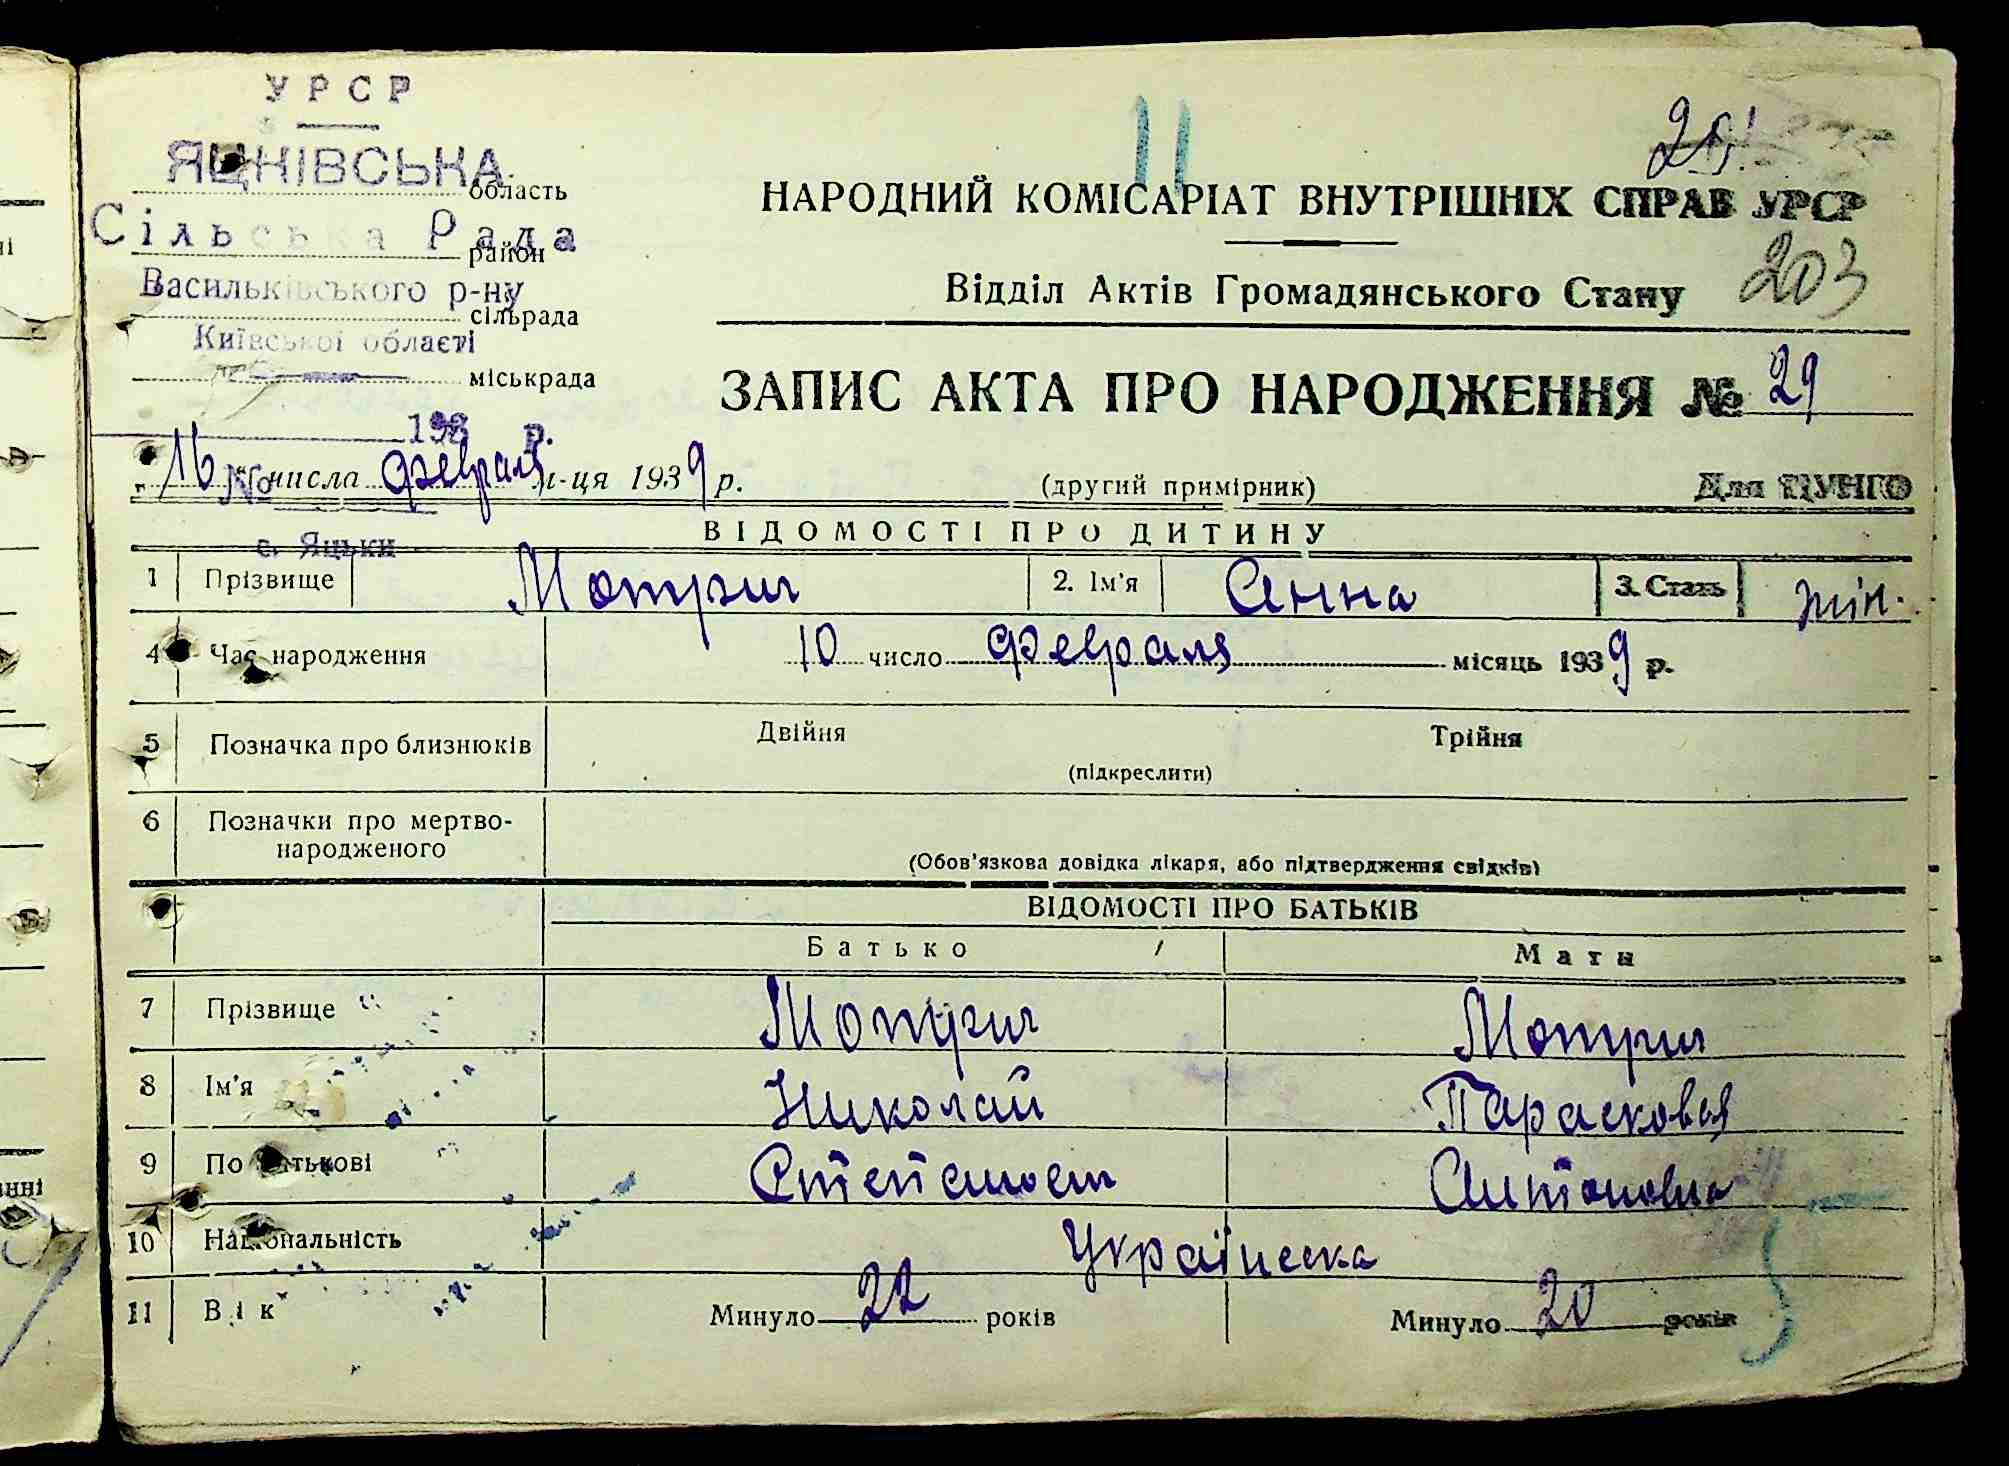 УРСР
ЯЦКІВСЬКА область
Сільська Рада район
Васильківського р-ну сільрада
Київської області міськрада
193 р.
№
с. Яцьки
11
203
НАРОДНИЙ КОМІСАРІАТ ВНУТРІШНІХ СПРАВ УРСР
Відділ Актів Громадянського Стану
ЗАПИС АКТА ПРО НАРОДЖЕННЯ № 29
16 числа Февраля м-ця 1939 р. (другий примірник) Для ЦУНГО
ВІДОМОСТІ ПРО ДИТИНУ
1 Прізвище Мотрич 2. Ім'я Анна 3. Стать жін.
4 Час народження 10 число Февраля місяць 1939 р.
5 Позначка про близнюків Двійня Трійня
(підкреслити)
6 Позначки про мертво-
народженого
(Обов'язкова довідка лікаря, або підтвердження свідків)
ВІДОМОСТІ ПРО БАТЬКІВ
Батько Мати
7 Прізвище Мотрич Мотрич
8 Ім'я Николай Парасковья
9 По батькові Антоновна
10 Національність
11 Вік Минуло 22 років Минуло 20 років